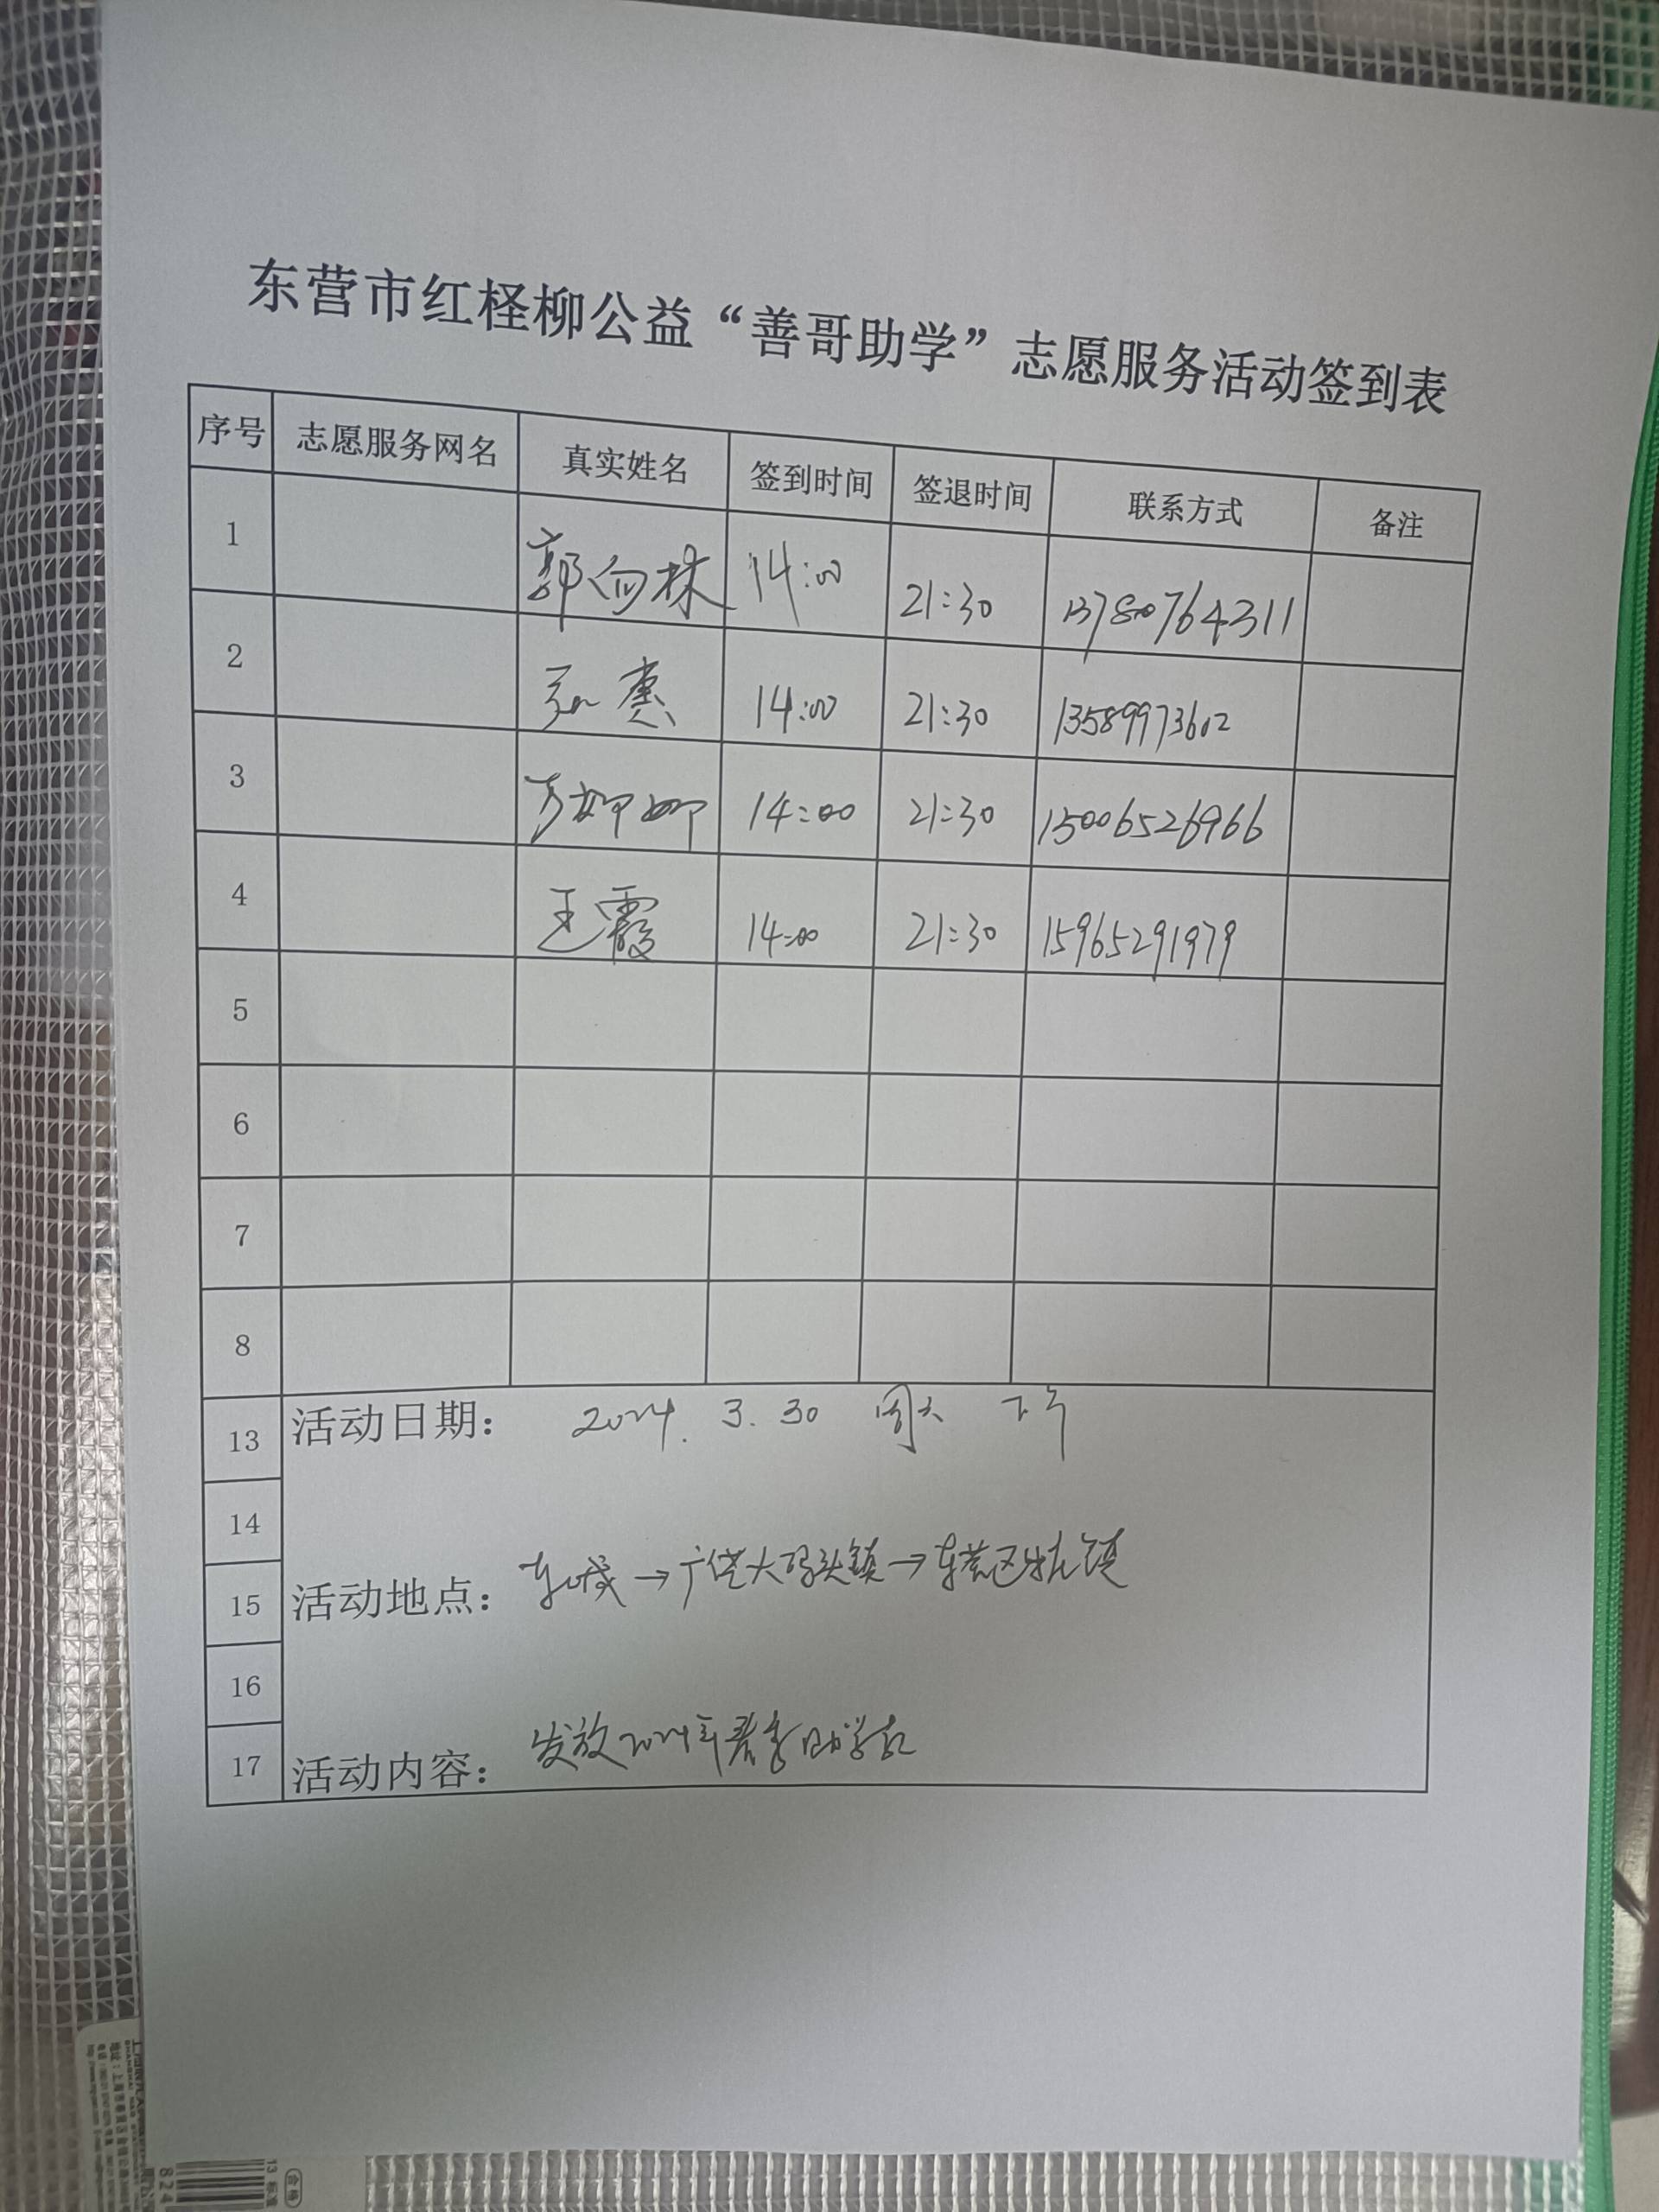 东营市红柽柳公益“善哥助学”志愿服务活动签到表
序号 志愿服务网名 真实姓名 签到时间 签退时间 联系方式 备注
1 郭向林 14:00 21:30 13780764311
2 14:00 21:30 13589973602
3 14:00 21:30 15006526966
4 王霞 14:00 21:30 15965291979
5
6
7
8
13 活动日期: 2024. 3. 30 周六 下午
14
15 活动地点: 东城→广饶大码头镇→东营区牛庄镇
16
17 活动内容: 发放2024年春季助学款
824
13 标准
合格